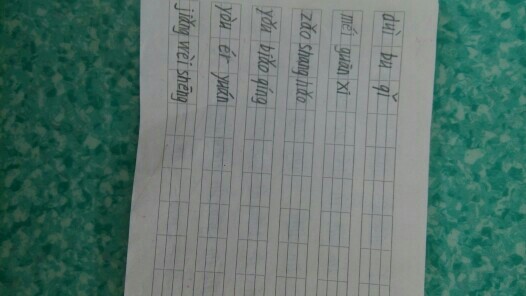 duì bu qǐ
méi guān xi
zǎo shang hǎo
yǒu biǎo qíng
yòu ér yuán
jiǎng wèi shēng